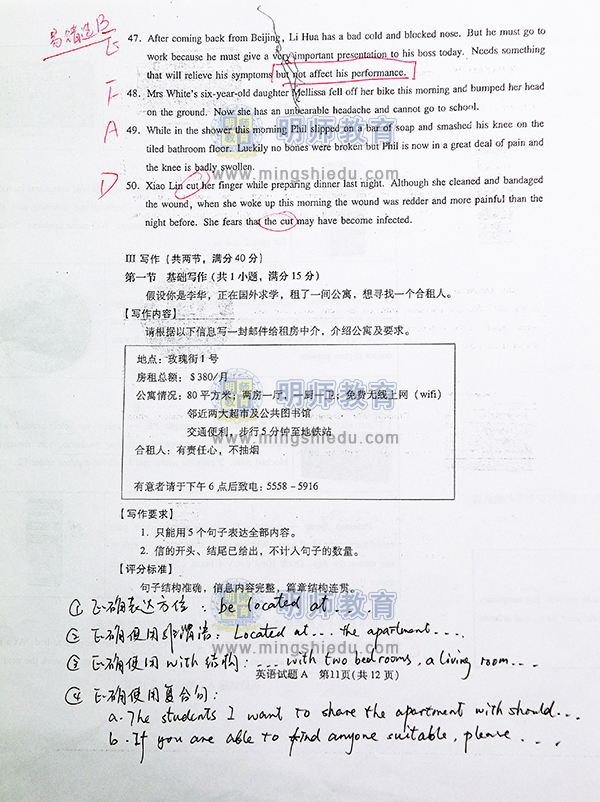 易错选B
E
47. After coming back from Beijing, Li Hua has a bad cold and blocked nose. But he must go to
work because he must give a very important presentation to his boss today. Needs something
that will relieve his symptoms but not affect his performance.
F
48. Mrs White's six-year-old daughter Mellissa fell off her bike this morning and bumped her head
on the ground. Now she has an unbearable headache and cannot go to school.
A
49. While in the shower this morning Phil slipped on a bar of soap and smashed his knee on the
tiled bathroom floor. Luckily no bones were broken but Phil is now in a great deal of pain and
the knee is badly swollen.
D
50. Xiao Lin cut her finger while preparing dinner last night. Although she cleaned and bandaged
the wound, when she woke up this morning the wound was redder and more painful than the
night before. She fears that the cut may have become infected.
明师教育
www.mingshiedu.com
III 写作 (共两节,满分40分)
第一节 基础写作(共1小题,满分15分)
假设你是李华,正在国外求学,租了一间公寓,想寻找一个合租人。
【写作内容】
请根据以下信息写一封邮件给租房中介,介绍公寓及要求。
地点:玫瑰街1号
房租总额:$380/月
公寓情况:80平方米;两房一厅,一厨一卫;免费无线上网(wifi)
邻近两大超市及公共图书馆
交通便利,步行5分钟至地铁站
合租人:有责任心,不抽烟
有意者请于下午6点后致电:5558-5916
明师教育
www.mingshiedu.com
【写作要求】
1. 只能用5个句子表达全部内容。
2. 信的开头、结尾已给出,不计入句子的数量。
【评分标准】
句子结构准确,信息内容完整,篇章结构连贯。
明师教育
www.mingshiedu.com
① 正确表达方位:be located at....
② 正确使用非谓语:Located at... the apartment....
③ 正确使用with结构:... with two bedrooms, a living room...
英语试题A 第11页(共12页)
④ 正确使用复合句:
a. The students I want to share the apartment with should...
b. If you are able to find anyone suitable, please ....